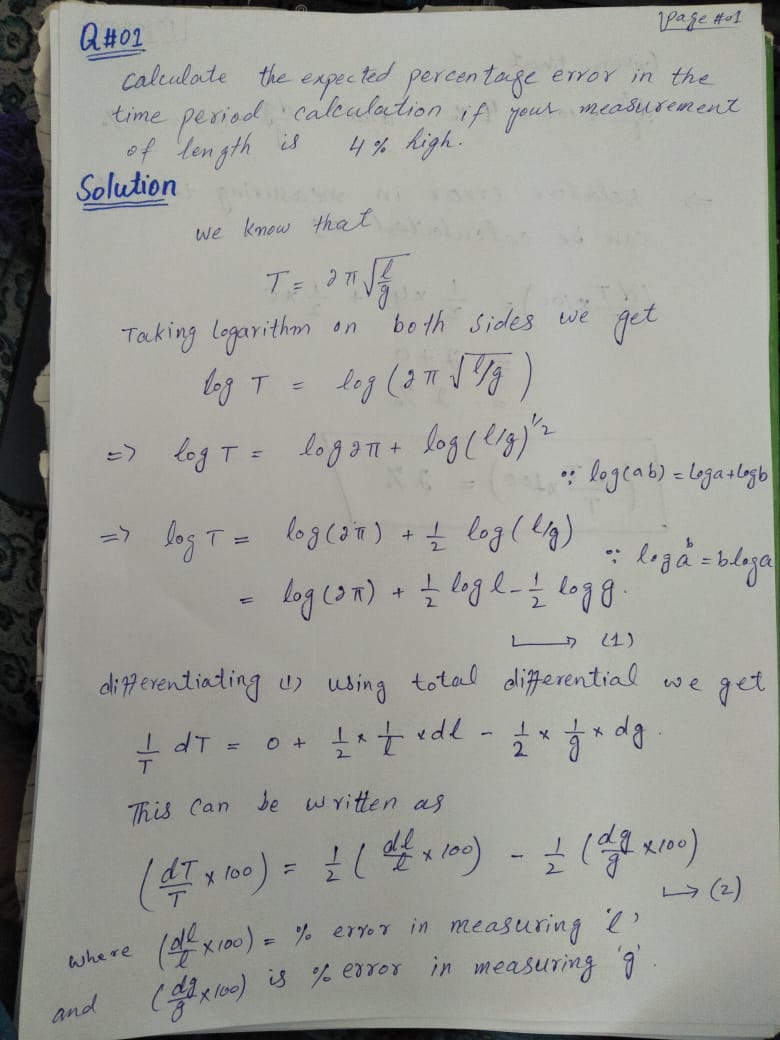 Page #01
Q#01
calculate the expected percentage error in the
time period calculation if your measurement
of length is 4% high.
Solution
we know that
T = 2π√(l/g)
Taking logarithm on both sides we get
log T = log (2π √(l/g))
=> log T = log 2π + log (l/g)^1/2
∵ log(ab) = loga+logb
=> log T = log(2π) + 1/2 log (l/g)
∵ log a^b = b.loga
= log (2π) + 1/2 log l - 1/2 log g.
↳ (1)
differentiating (1) using total differential we get
1/T dT = 0 + 1/2 x 1/l x dl - 1/2 x 1/g x dg.
This can be written as
(dT/T x 100) = 1/2 (dl/l x 100) - 1/2 (dg/g x100)
↳ (2)
where (dl/l x100) = % error in measuring 'l'
and (dg/g x100) is % error in measuring 'g'.